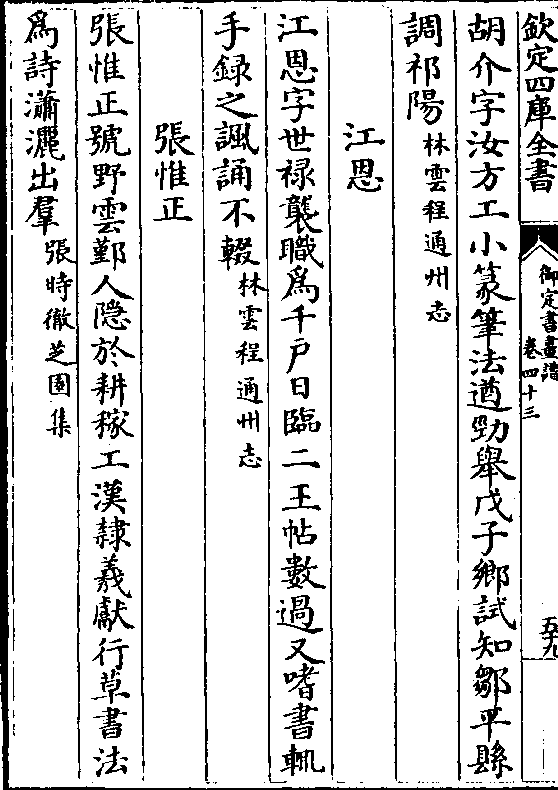 欽定四庫全書
御定書畫譜
卷四十三
五十九
胡介字汝方工小篆筆法遒勁舉戊子鄉試知鄒平縣
調祁陽林雲程通州志
江恩
江恩字世禄襲職爲千戶日臨二王帖數過又嗜書輒
手録之諷誦不輟林雲程通州志
張惟正
張惟正號野雲鄞人隠於耕稼工漢隸羲獻行草書法
爲詩瀟灑出羣張時徹芝園集